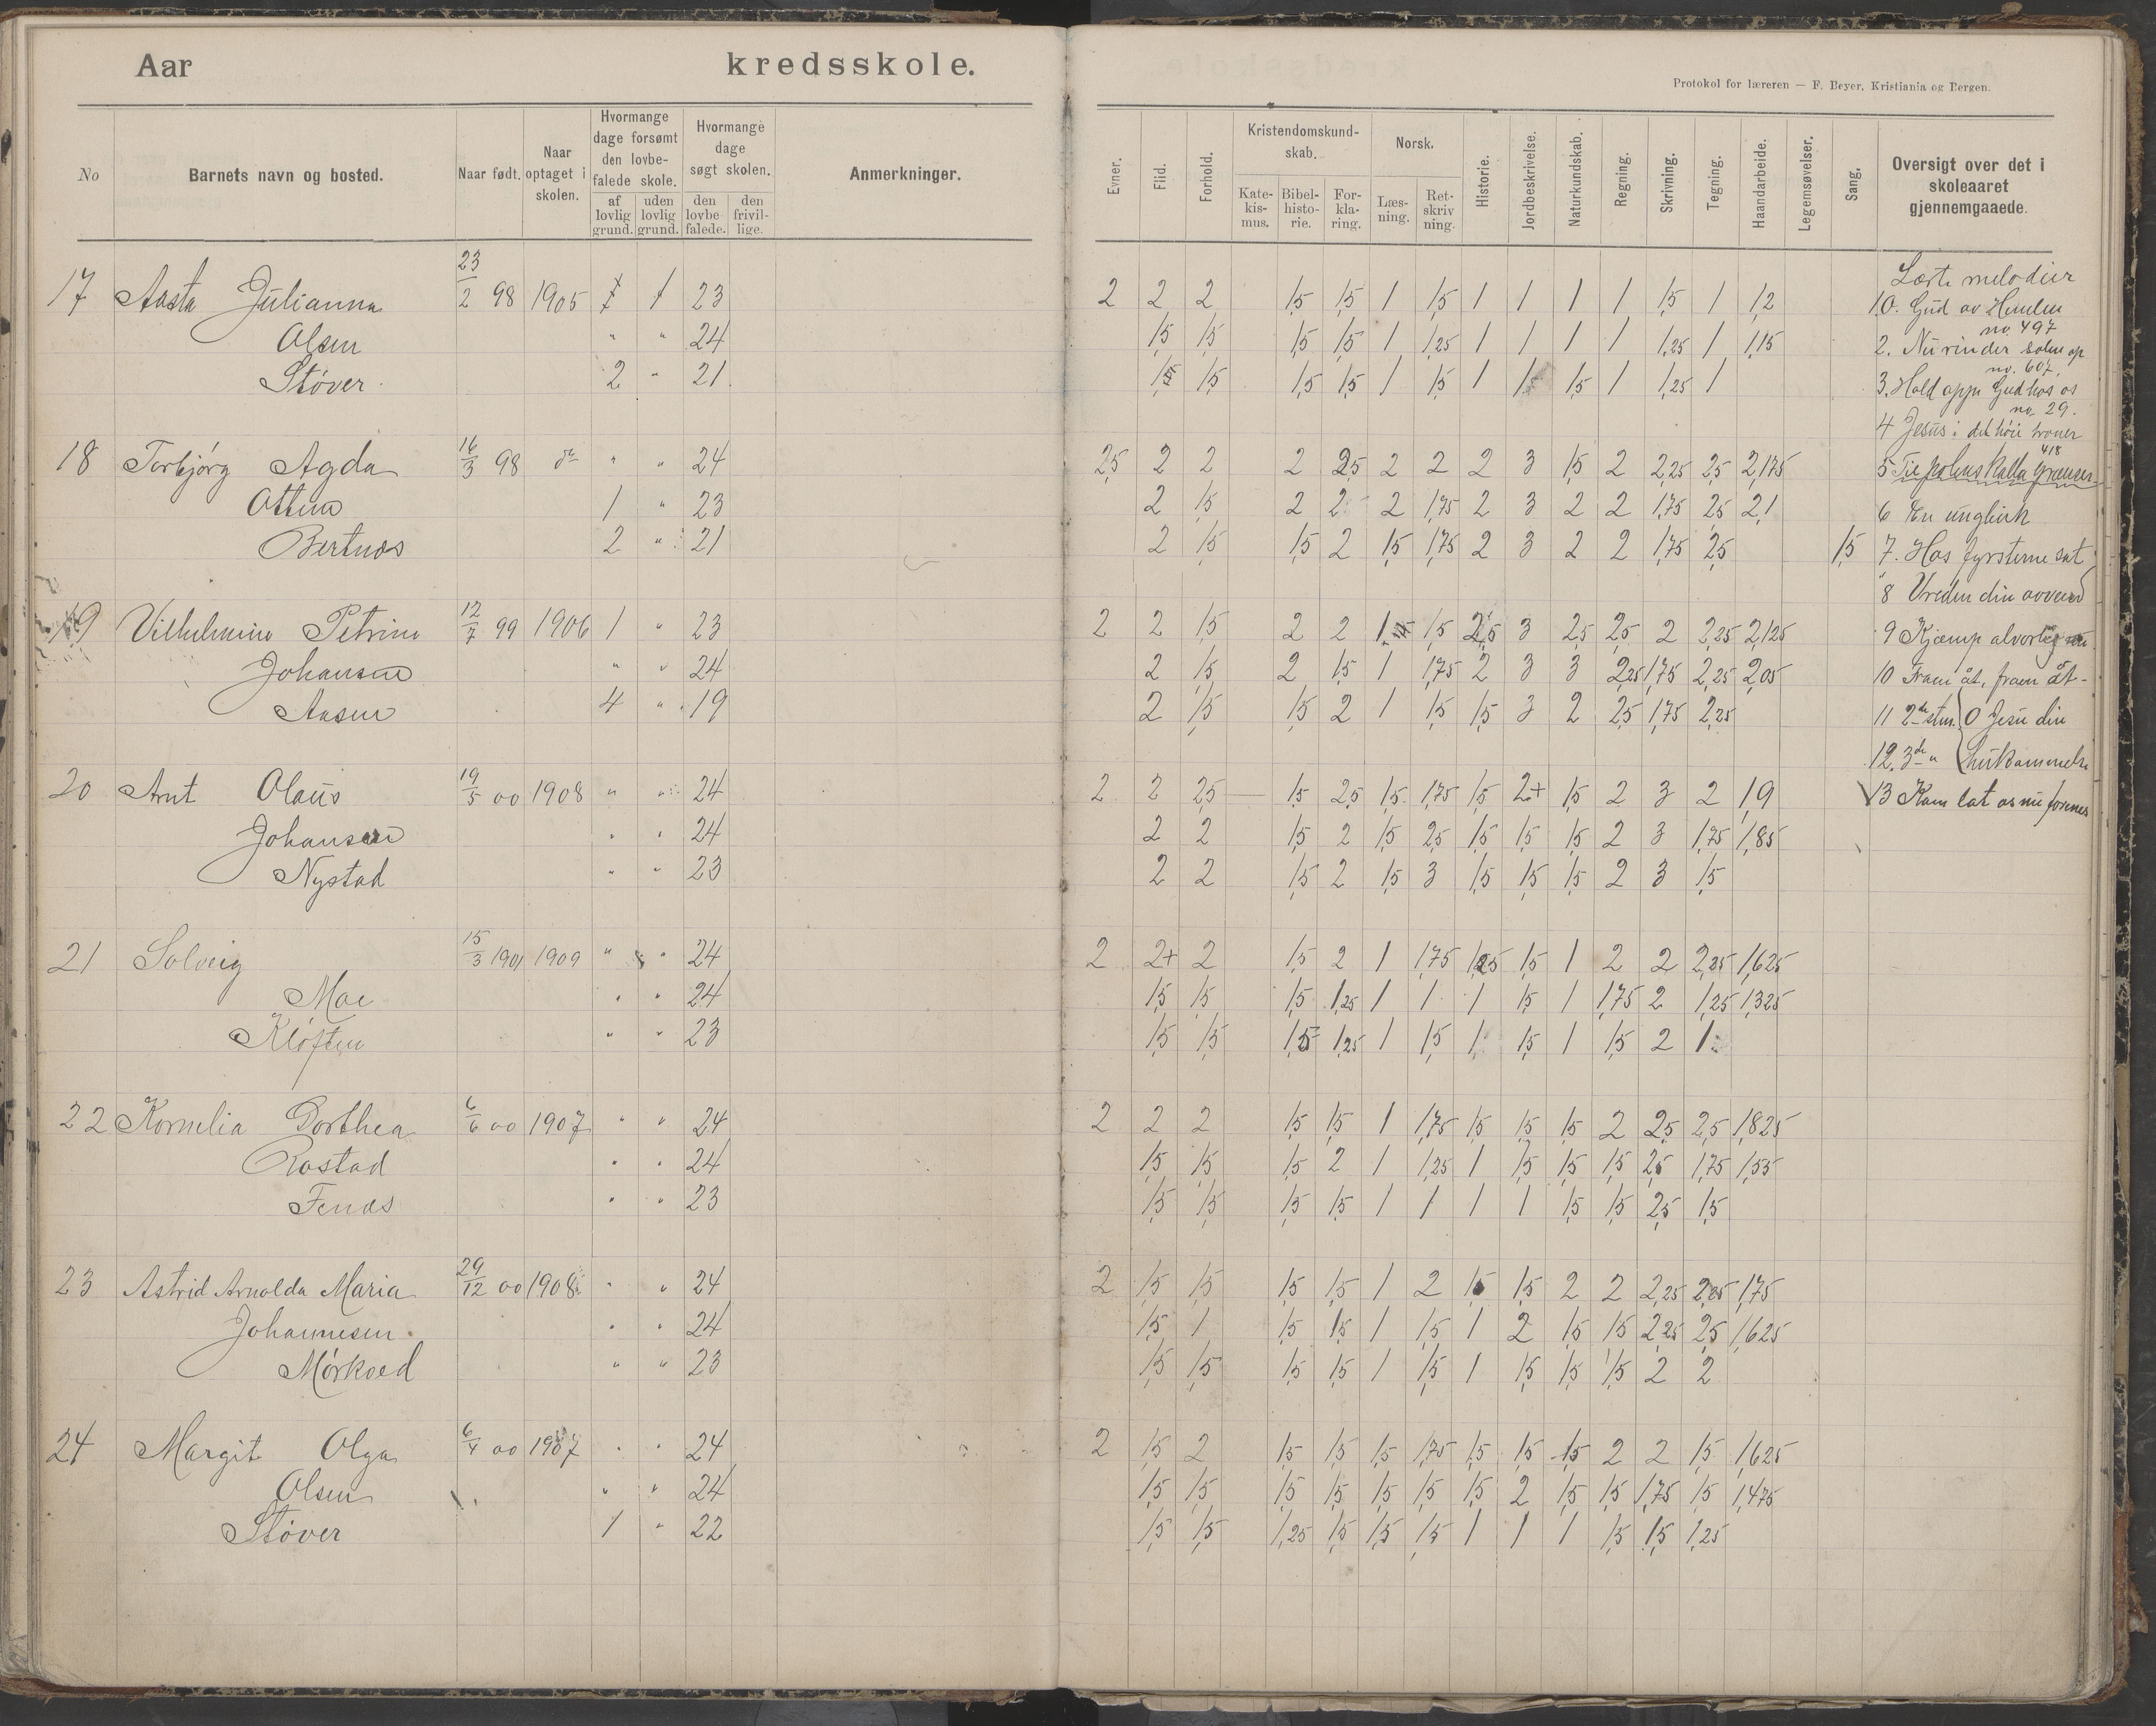 Aar kredsskole.
Protokol for læreren — F. Beyer, Kristiania og Bergen.
No Barnets navn og bosted. Naar født. Naar optaget i skolen. Hvormange dage forsømt den lovbefalede skole. af lovlig grund. uden lovlig grund. Hvormange dage søgt skolen. den lovbefalede. den frivillige. Anmerkninger.
Evner. Flid. Forhold. Kristendomskundskab. Katekismus. Bibelhistorie. Forklaring. Norsk. Læsning. Retskrivning. Historie. Jordbeskrivelse. Naturkundskab. Regning. Skrivning. Tegning. Haandarbeide. Legemsøvelser. Sang. Oversigt over det i skoleaaret gjennemgaaede.
17 Aasta Julianna 23/2 98 1905 23 2 2 2 1,5 1,5 1 1,5 1 1 1 1 1,5 1 1,2
Olsen " " 24 1,5 1,5 1,5 1,5 1 1,25 1 1 1 1 1,25 1 1,15
Støver 2 " 21 1,5 1,5 1,5 1,5 1 1,5 1 1,5 1,5 1 1,25 1
18 Torbjørg Agda 16/3 98 do " " 24 2,5 2 2 2 2,5 2 2 2 3 1,5 2 2,25 2,5 2,175
Ottina 1 " 23 2 1,5 2 2 2 1,75 2 3 2 2 1,75 2,5 2,1
Bertnes 2 " 21 2 1,5 1,5 2 1,5 1,75 2 3 2 2 1,75 2,5 1,5
19 Vilhelmine Petrine 12/7 99 1906 1 " 23 2 2 1,5 2 2 1,5 2,5 3 2,5 2,5 2 2,25 2,125
Johansen " " 24 2 1,5 2 1,5 1 1,75 2 3 3 2,25 1,75 2,25 2,05
Aasen 4 " 19 2 1,5 1,5 2 1 1,5 1,5 3 2 2,5 1,75 2,25
20 Arnt Olaus 19/5 00 1908 " " 24 2 2 2,5 1,5 2,5 1,5 1,75 1,5 2+ 1,5 2 3 2 1,9
Johansen " " 24 2 2 1,5 2 1,5 2,5 1,5 1,5 1,5 2 3 1,75 1,85
Nystad " " 23 2 2 1,5 2 1,5 3 1,5 1,5 1,5 2 3 1,5
21 Solveig 15/3 1901 1909 " " 24 2 2+ 2 1,5 2 1 1,75 1,25 1,5 1 2 2 2,25 1,625
Moe " " 24 1,5 1,5 1,5 1,25 1 1 1 1,5 1 1,75 2 1,25 1,325
Kløften " " 23 1,5 1,5 1,5 1,25 1 1,5 1 1,5 1 1,5 2 1
22 Kornelia Dorthea 6/6 00 1907 " " 24 2 2 2 1,5 1,5 1 1,75 1,5 1,5 1,5 2 2,5 2,5 1,825
Rostad " " 24 1,5 1,5 1,5 2 1 1,25 1 1,5 1,5 1,5 2,5 1,75 1,55
Fenes " " 23 1,5 1,5 1,5 1,5 1 1 1 1 1,5 1,5 2,5 1,5
23 Astrid Arnolda Maria 29/12 00 1908 " " 24 2 1,5 1,5 1,5 1,5 1 2 1,5 1,5 2 2 2,25 2,25 1,75
Johannesen " " 24 1,5 1 1,5 1,5 1 1,5 1 2 1,5 1,5 2,25 2,5 1,625
Mørkved " " 23 1,5 1,5 1,5 1,5 1 1,5 1 1,5 1,5 1,5 2 2
24 Margit Olga 6/4 00 1907 " " 24 2 1,5 2 1,5 1,5 1,5 1,75 1,5 1,5 1,5 2 2 1,5 1,625
Olsen " " 24 1,5 1,5 1,5 1,5 1,5 1,5 1,5 2 1,5 1,5 1,75 1,5 1,475
Støver 1 " 22 1,5 1,5 1,25 1,5 1,5 1,5 1 1 1 1,5 1,5 1,25
Lærte melodier
10. Gud av Himlen
no. 497
2. Nu rinder solen op
no. 607.
3. Hold oppe Gud hos os
no. 29.
4 Jesus i det høie troner
418
5 Til polens kalde Grænser
6 En ung birk
7. Hos fyrsterne sat
8 Vreden din avvend
9 Kjæmp alvorlig
10 Fram åt, fram åt-
11 2de stm. O Jesu din
12. 3de " hukommelse
13 Kom lat os nu forenes